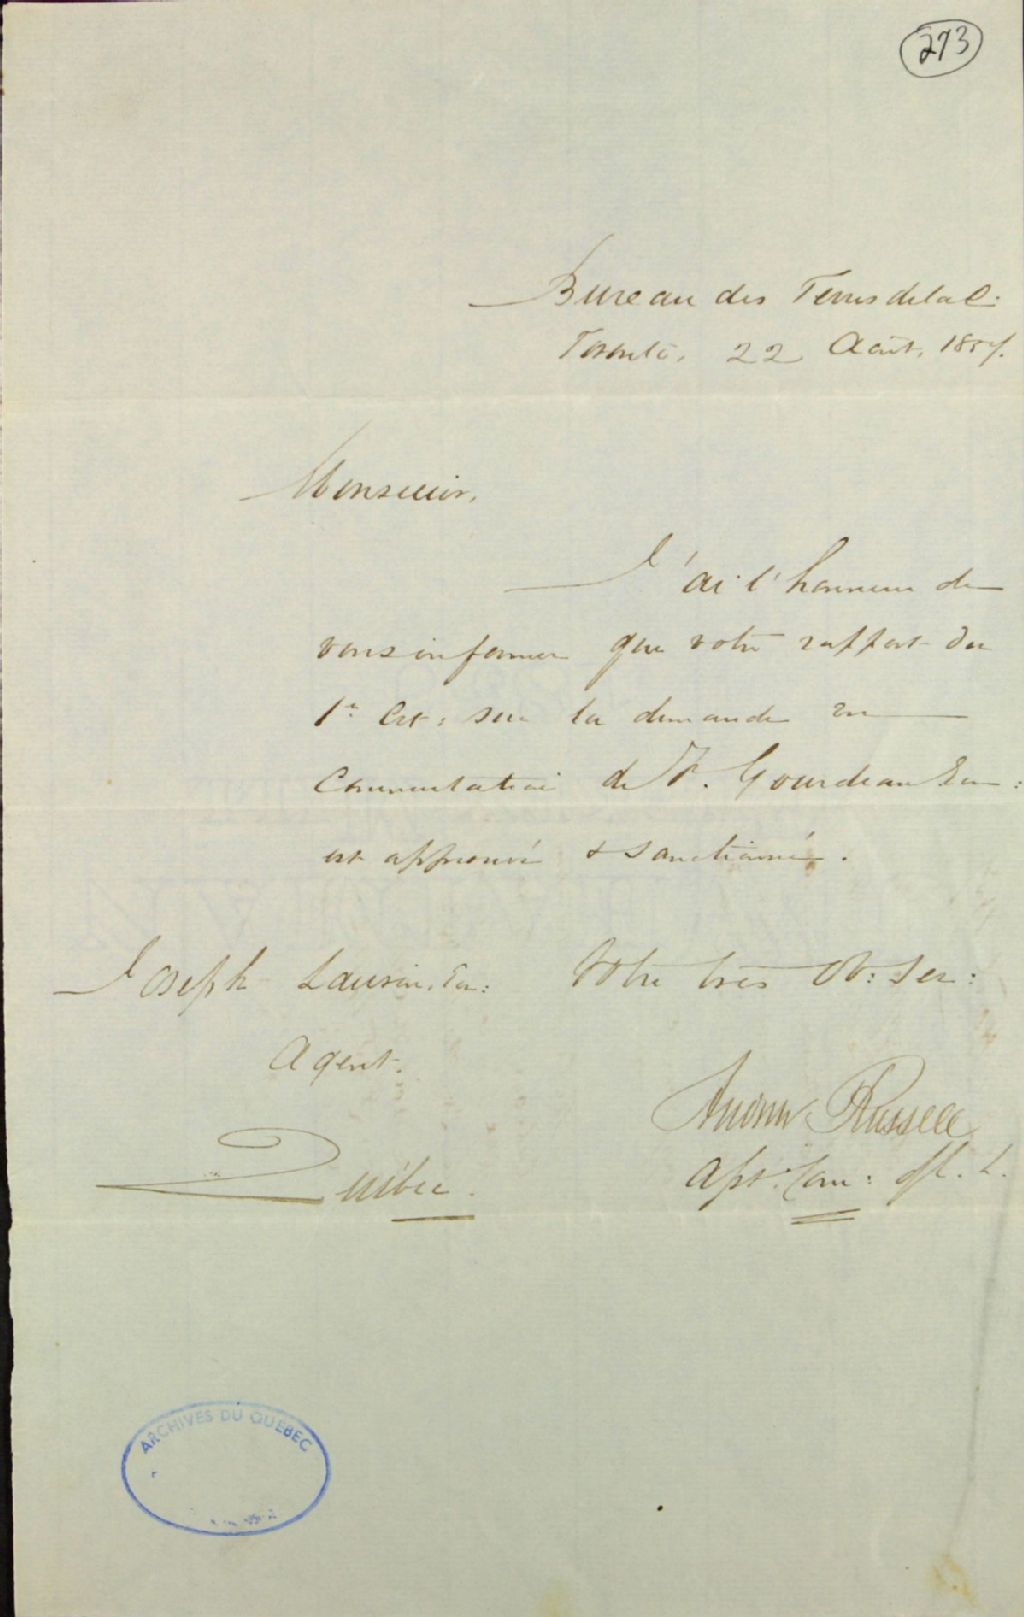 273
Bureau des Terres de la C:
Toronto, 22 Août, 1857.
Monsieur,
J'ai l'honneur de
vous informer que votre rapport du
1er sur la demande en
Commutation de F. Gourdeau Ecr:
est approuvé & sanctionné.
Joseph Laurin, Ecr: Votre très Ob: Ser:
Agent.
Andrew Russell
Québec. Asst. Com:
ARCHIVES DU QUÉBEC